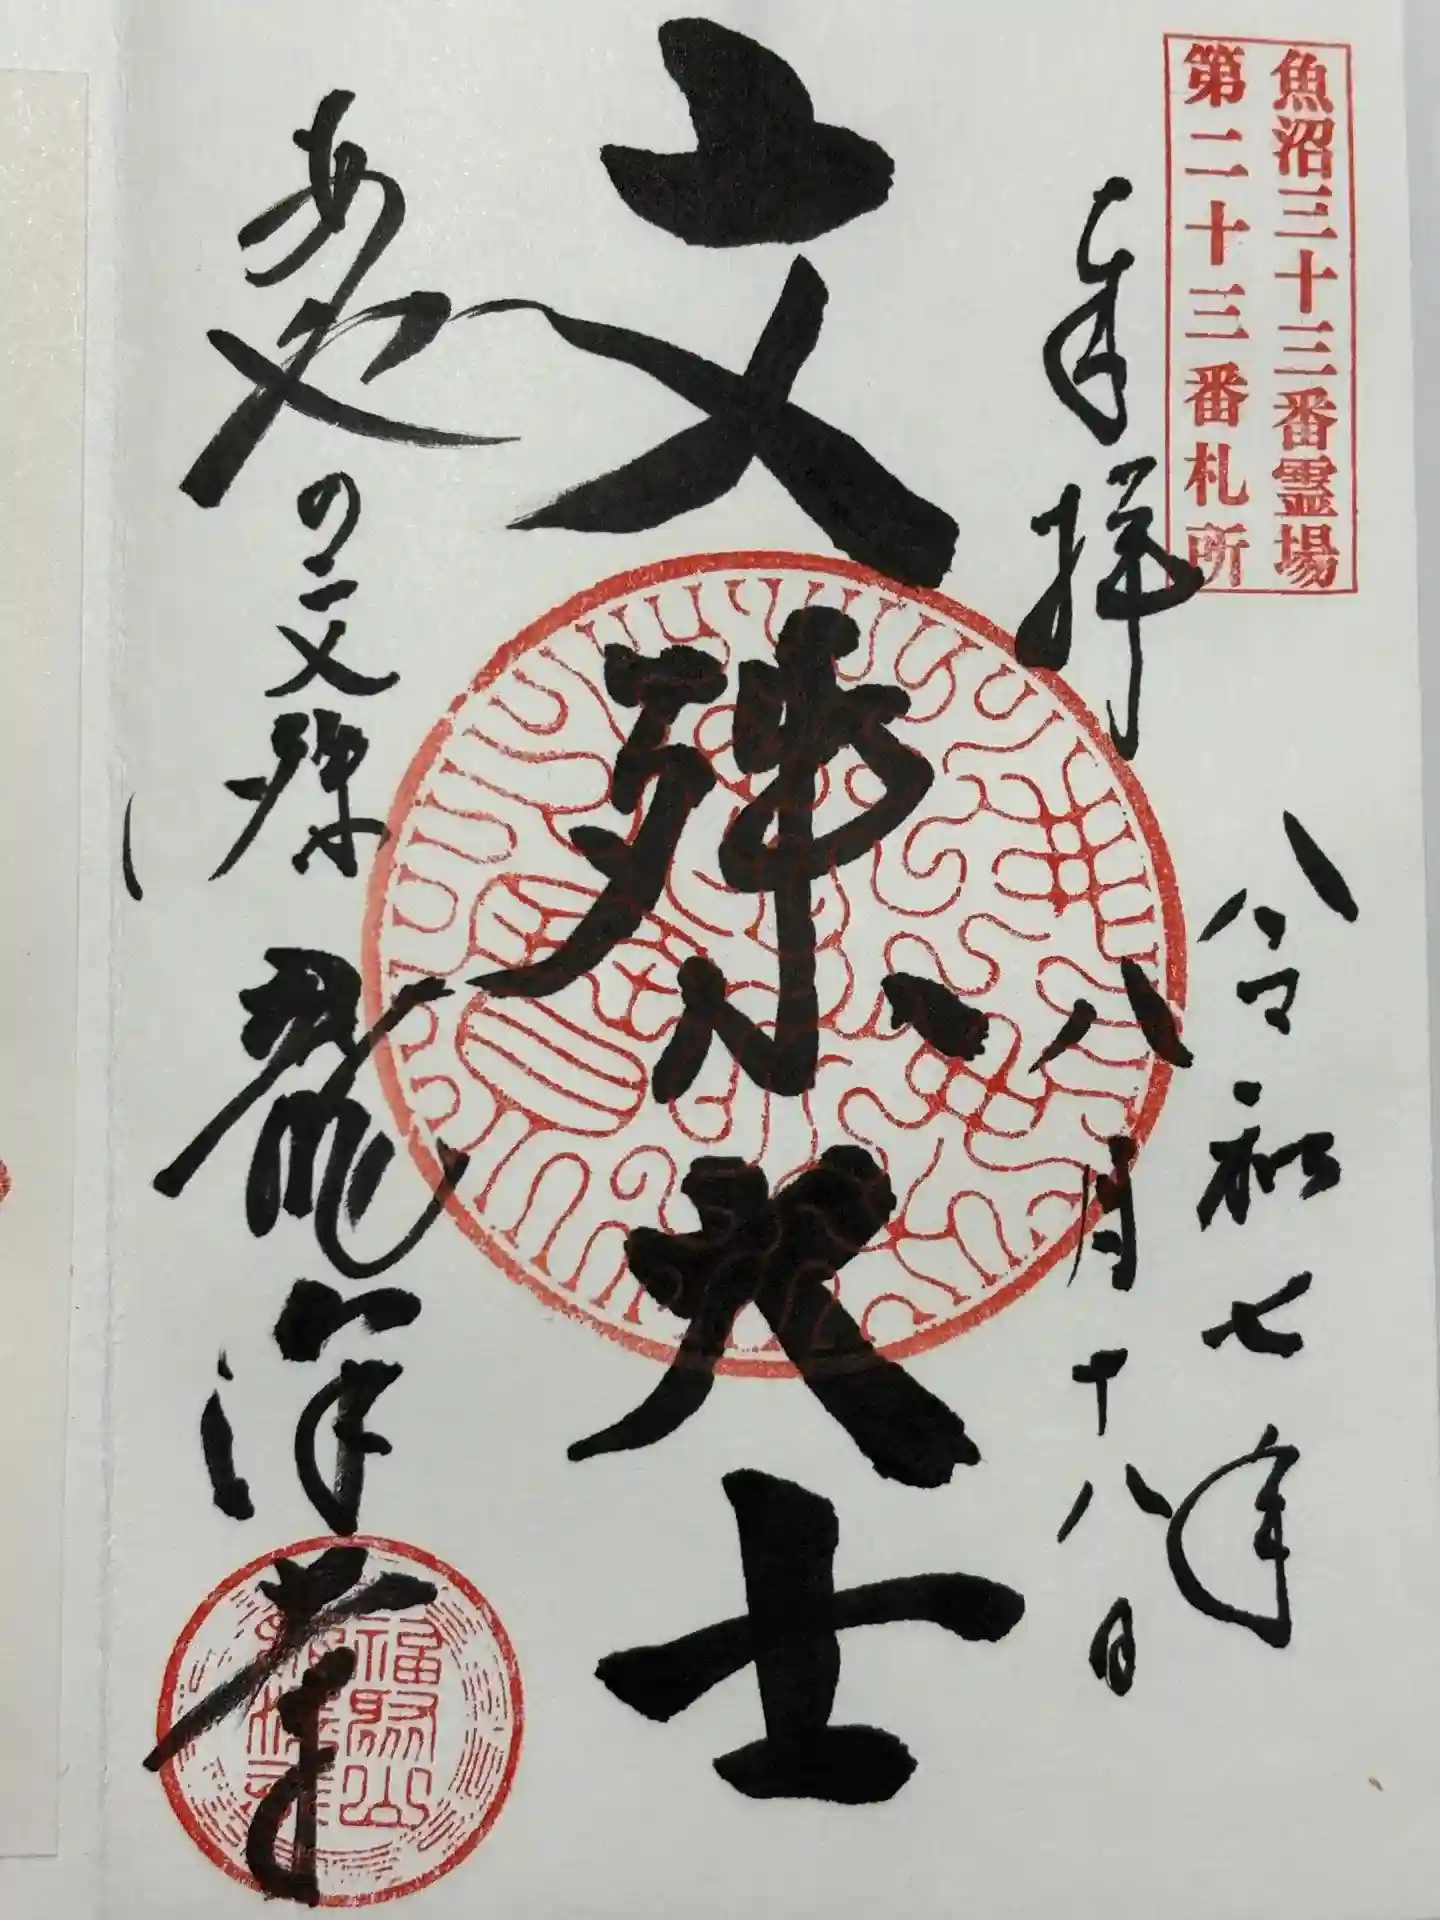 魚沼三十三番霊場
第二十三番札所
奉拝
令和七年
八月十八日
文殊大士
あやの文殊 龍澤寺
福聚山